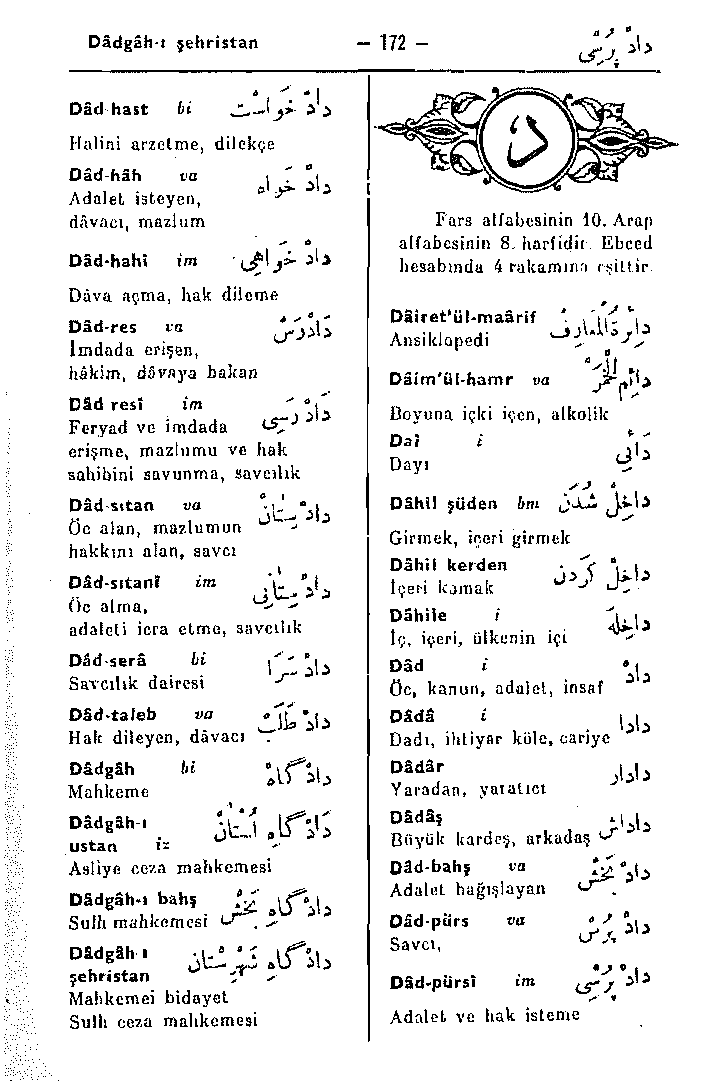 Dâdgâh-ı şehristan – 172 – دادْ پُرْسِی
د
Fars alfabesinin 10. Arap
alfabesinin 8. harfidir. Ebced
hesabında 4 rakamına eşittir.
Dâiret'ül-maârif دائرةُالمَعارِف
Ansiklopedi
Dâim'ül-hamr va دائِمُ الْخَمْر
Boyuna içki içen, alkolik
Daî i دائی
Dayı
Dâhil şüden bm داخِلْ شُدَنْ
Girmek, içeri girmek
Dâhil kerden داخِلْ کَرْدَن
İçeri komak
Dâhile i داخِلَه
İç, içeri, ülkenin içi
Dâd i دادْ
Öc, kanun, adalet, insaf
Dâdâ i دادا
Dadı, ihtiyar köle, cariye
Dâdâr دادار
Yaradan, yaratıcı
Dâdâş داداش
Büyük kardeş, arkadaş
Dâd-bahş va دادْ بَخْش
Adalet bağışlayan
Dâd-pürs va دادْ پُرْس
Savcı,
Dâd-pürsî im دادْ پُرْسِی
Adalet ve hak isteme
Dâd-hast bi دادْ خَواسْت
Halini arzetme, dilekçe
Dâd-hâh va دادْ خَواه
Adalet isteyen,
dâvacı, mazlum
Dâd-hahî im دادْ خَواهی
Dâva açma, hak dileme
Dâd-res va دادْرَسْ
İmdada erişen,
hâkim, dâvaya bakan
Dâd resî im دادْ رَسِی
Feryad ve imdada
erişme, mazlumu ve hak
sahibini savunma, savcılık
Dâd-sıtan va دادْ سِتانْ
Öc alan, mazlumun
hakkını alan, savcı
Dâd-sıtanî im دادْ سِتانی
Öc alma,
adaleti icra etme, savcılık
Dâd-serâ bi دادْ سَرَا
Savcılık dairesi
Dâd-taleb va دادْ طَلَبْ
Hak dileyen, dâvacı
Dâdgâh bi دادْ گاهْ
Mahkeme
Dâdgâh-ı دادْگاهِ اُسْتانْ
ustan iz
Asliye ceza mahkemesi
Dâdgâh-ı bahş دادْگاهِ بَخْش
Sulh mahkemesi
Dâdgâh-ı دادْگاهِ شَهْرِسْتان
şehristan
Mahkemei bidayet
Sulh ceza mahkemesi